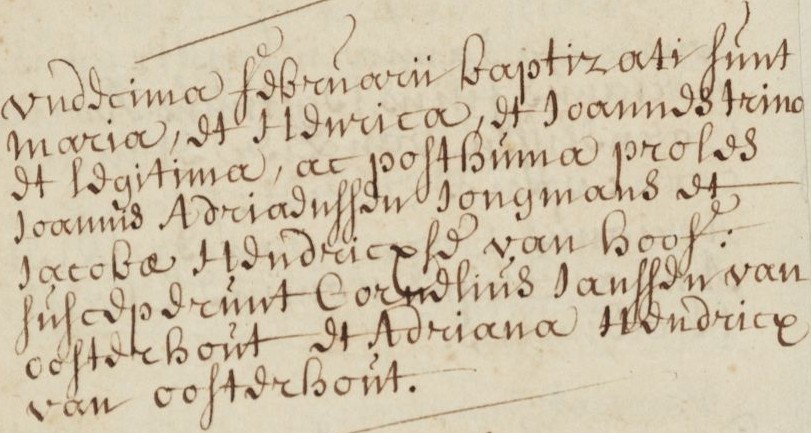 vndecima februarii baptizati sunt
maria, et Henrica, et Joannes trina
et legitima, ac posthuma proles
Joannis Adriaenssen Jongmans et
Jacobæ Hendricx se van hoof:
susceperunt Cornelius Janssen van
oosterhout et Adriana Hendricx
van oosterhout.